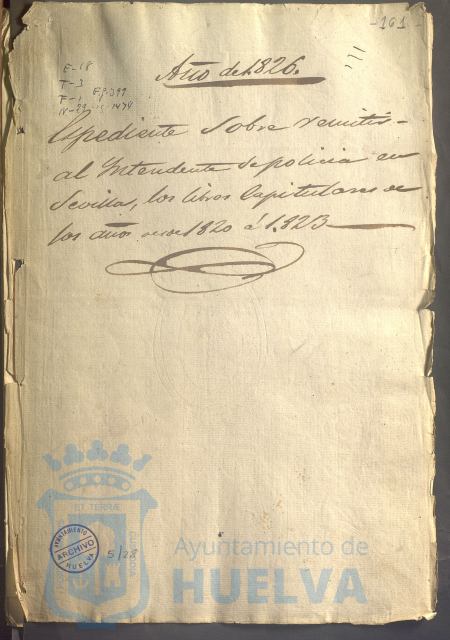 -101-
Año de 1826.
E-18
T-3
F-1 Ep. 399
Expediente sobre remitir
al Intendente de policia en
Sevilla, los libros Capitulares de
los años de 1820 á 1823
AYUNTAMIENTO
ARCHIVO
HUELVA
5/28
Ayuntamiento de
HUELVA